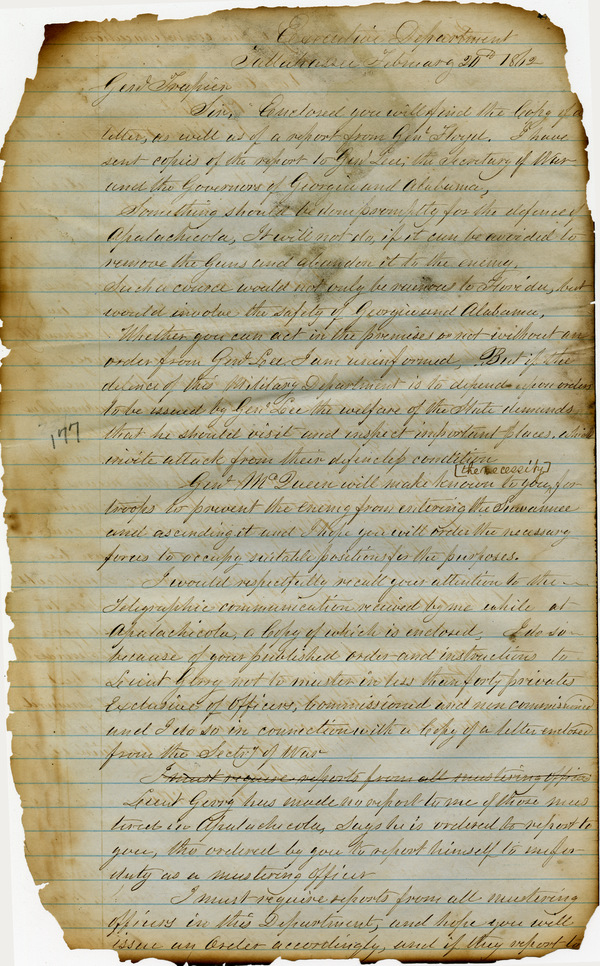 Executive Department
Tallahassee February 20th 1862
Genl Trapier
Sir, Enclosed you will find the Copy of a
letter, as will as of a report from Genl Floyd. I have
sent copies of the report to Genl Lee, the Secretary of War
and the Governors of Georgia and Alabama,
Something should be done promptly for the defence of
Apalachicola, It will not do, if it can be avoided to
remove the Guns and abandon it to the enemy,
Such a course would not only be ruinous to Florida, but
would involve the safety of Georgia and Alabama,
Whether you can act in the premises or not without an
order from Genl Lee I am uninformed, But if the
defence of this Military Department is to depend upon orders
to be issued by Genl Lee the welfare of the State demands
that he should visit and inspect important places, which
invite attack from their defencless condition
[the necessity]
Genl McQueen will make known to you for
troops to prevent the enemy from entering the Suwannee
and ascending it and I hope you will order the necessary
forces to occupy suitable positions for the purposes.
I would respectfully recall your attention to the
Telegraphic communication recieved by me while at
Apalachicola, a Copy of which is enclosed, I do so
because of your published order and instructions to
Lieut Gorg not to muster in less than forty privates
exclusive of officers, commissioned and non commissioned
and I do so in connection with a Copy of a letter enclosed
from the Sectry of War
I must require reports from all mustering officers
Lieut Georg has made no report to me of those mus
tered in Apalachicola, Says he is ordered to report to
you, tho' ordered by you to report himself to me for
duty as a mustering officer
I must require reports from all mustering
officers in this Department, and hope you will
issue an Order accordingly, and if they report to
177